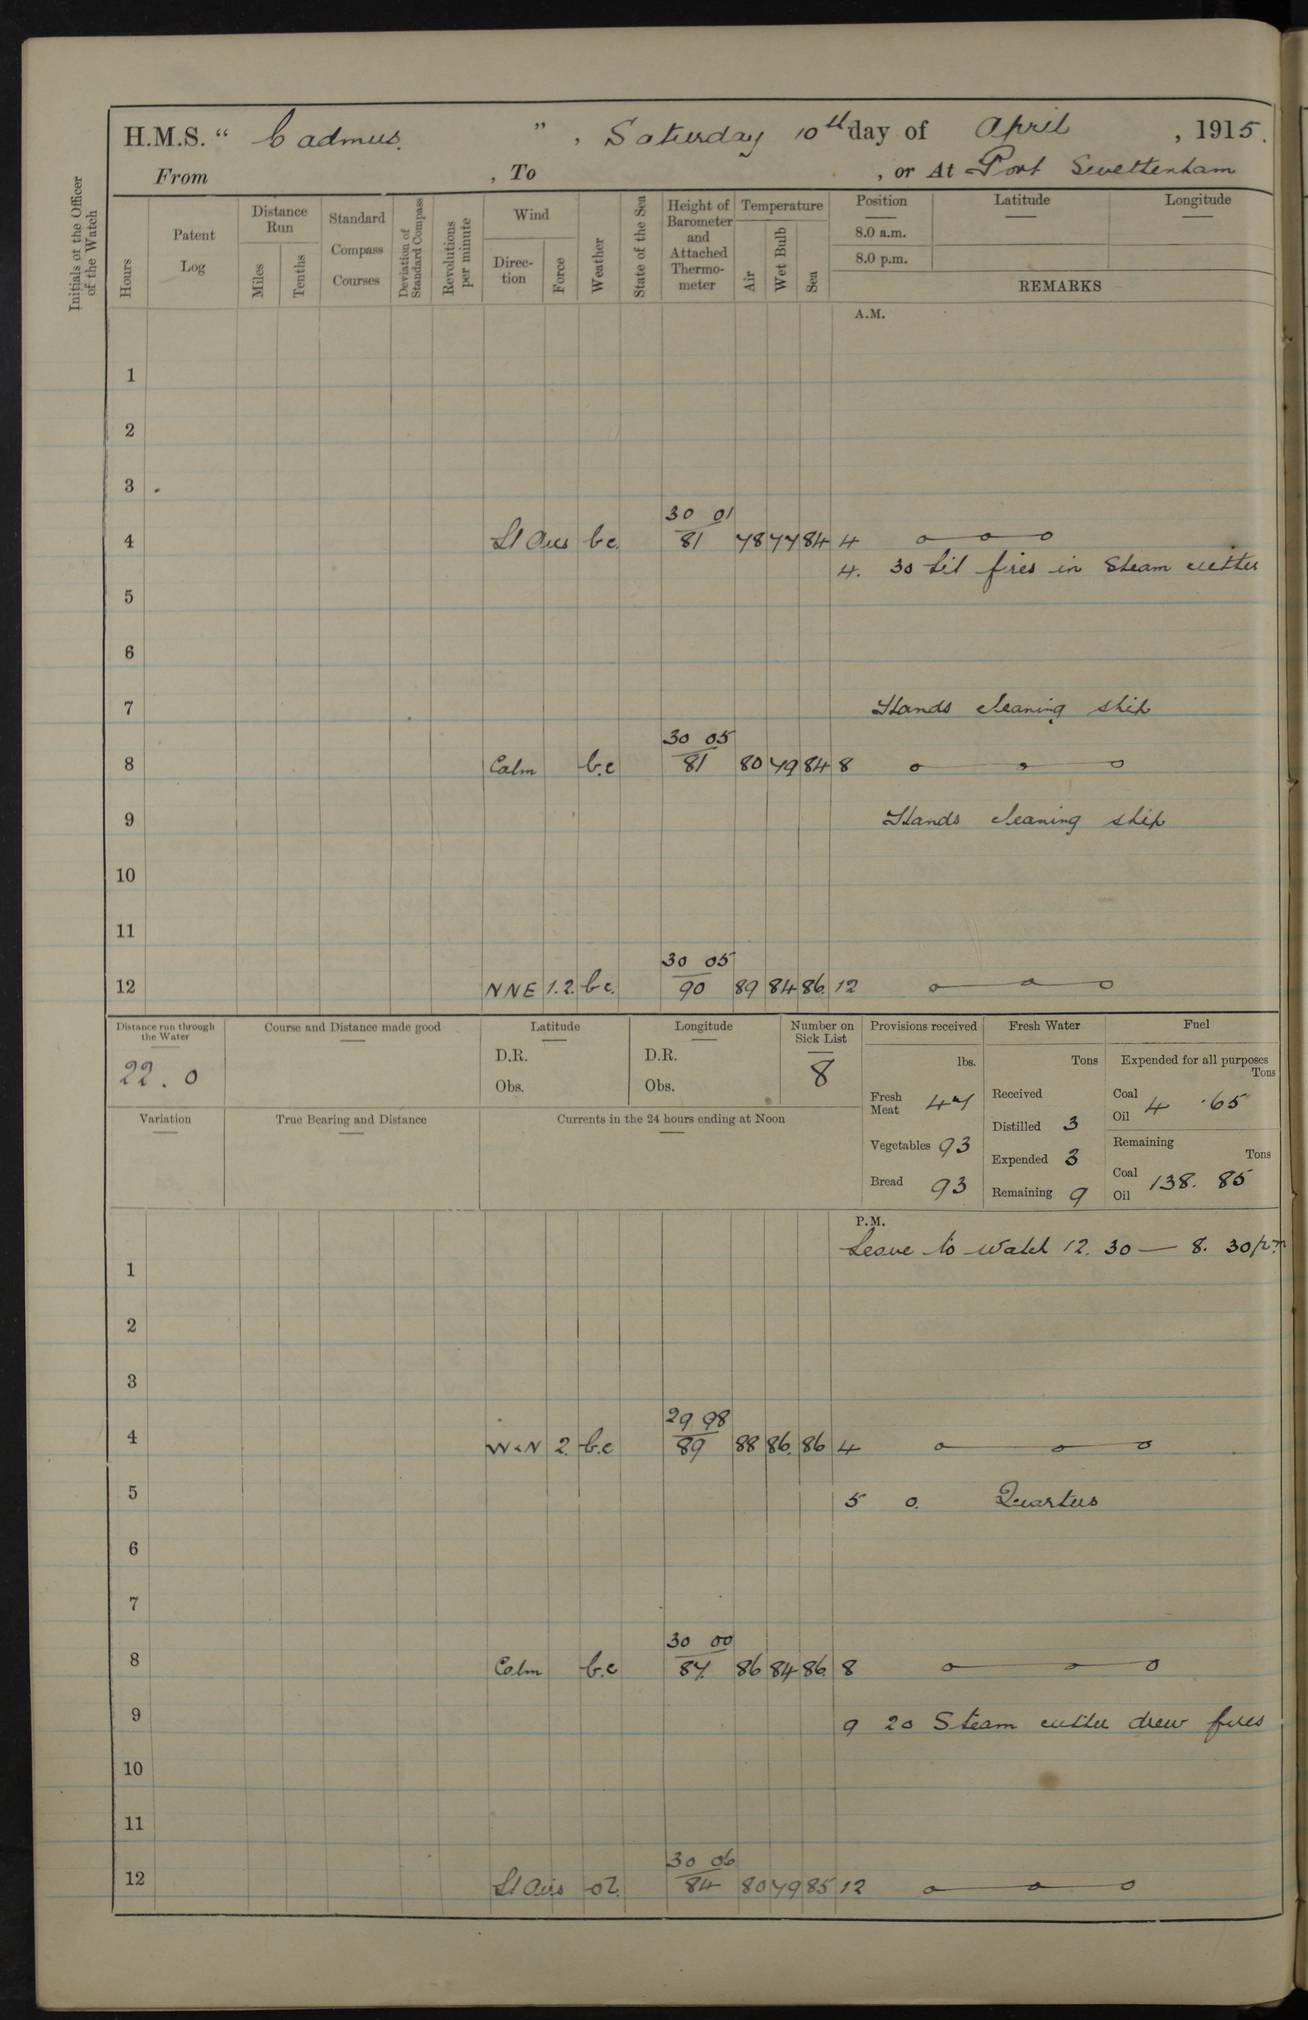 H.M.S. " Cadmus. ", Saturday 10th day of April, 1915.
From , To , or At Port Swettenham
Initials of the Officer of the Watch
Hours
Patent Log
Distance Run
Miles
Tenths
Standard Compass Courses
Deviation of Standard Compass
Revolutions per minute
Wind
Direction
Force
Weather
State of the Sea
Height of Barometer and Attached Thermometer
Temperature
Air
Wet Bulb
Sea
Position
8.0 a.m.
8.0 p.m.
Latitude
Longitude
REMARKS
A.M.
1
2
3
30 01
4 Lt Airs b c. 81 78 77 84 4
4. 30 Lit fires in Steam cutter
5
6
7 Hands cleaning ship
30 05
8 Calm b.c 81 80 79 84 8
9 Hands cleaning ship
10
11
30 05
12 NNE 1.2. b c. 90 89 84 86. 12
Distance run through the Water
22 . 0
Course and Distance made good
Latitude
D.R.
Obs.
Longitude
D.R.
Obs.
Number on Sick List
8
Provisions received
lbs.
Fresh Meat 47
Vegetables 93
Bread 93
Fresh Water
Tons
Received
Distilled 3
Expended 3
Remaining 9
Fuel
Expended for all purposes
Tons
Coal
Oil 4 .65
Remaining
Tons
Coal
Oil 138. 85
Variation
True Bearing and Distance
Currents in the 24 hours ending at Noon
P.M.
Leave to watch 12. 30 — 8. 30 p.m
1
2
3
29 98
4 W×N 2. b.c 89 88 86. 86 4
5 5 0. Quarters
6
7
30 00
8 Calm b.c 87. 86 84 86. 8
9 9 20 Steam cutter drew fires
10
11
30 06
12 Lt Airs 84 80 79 85 12